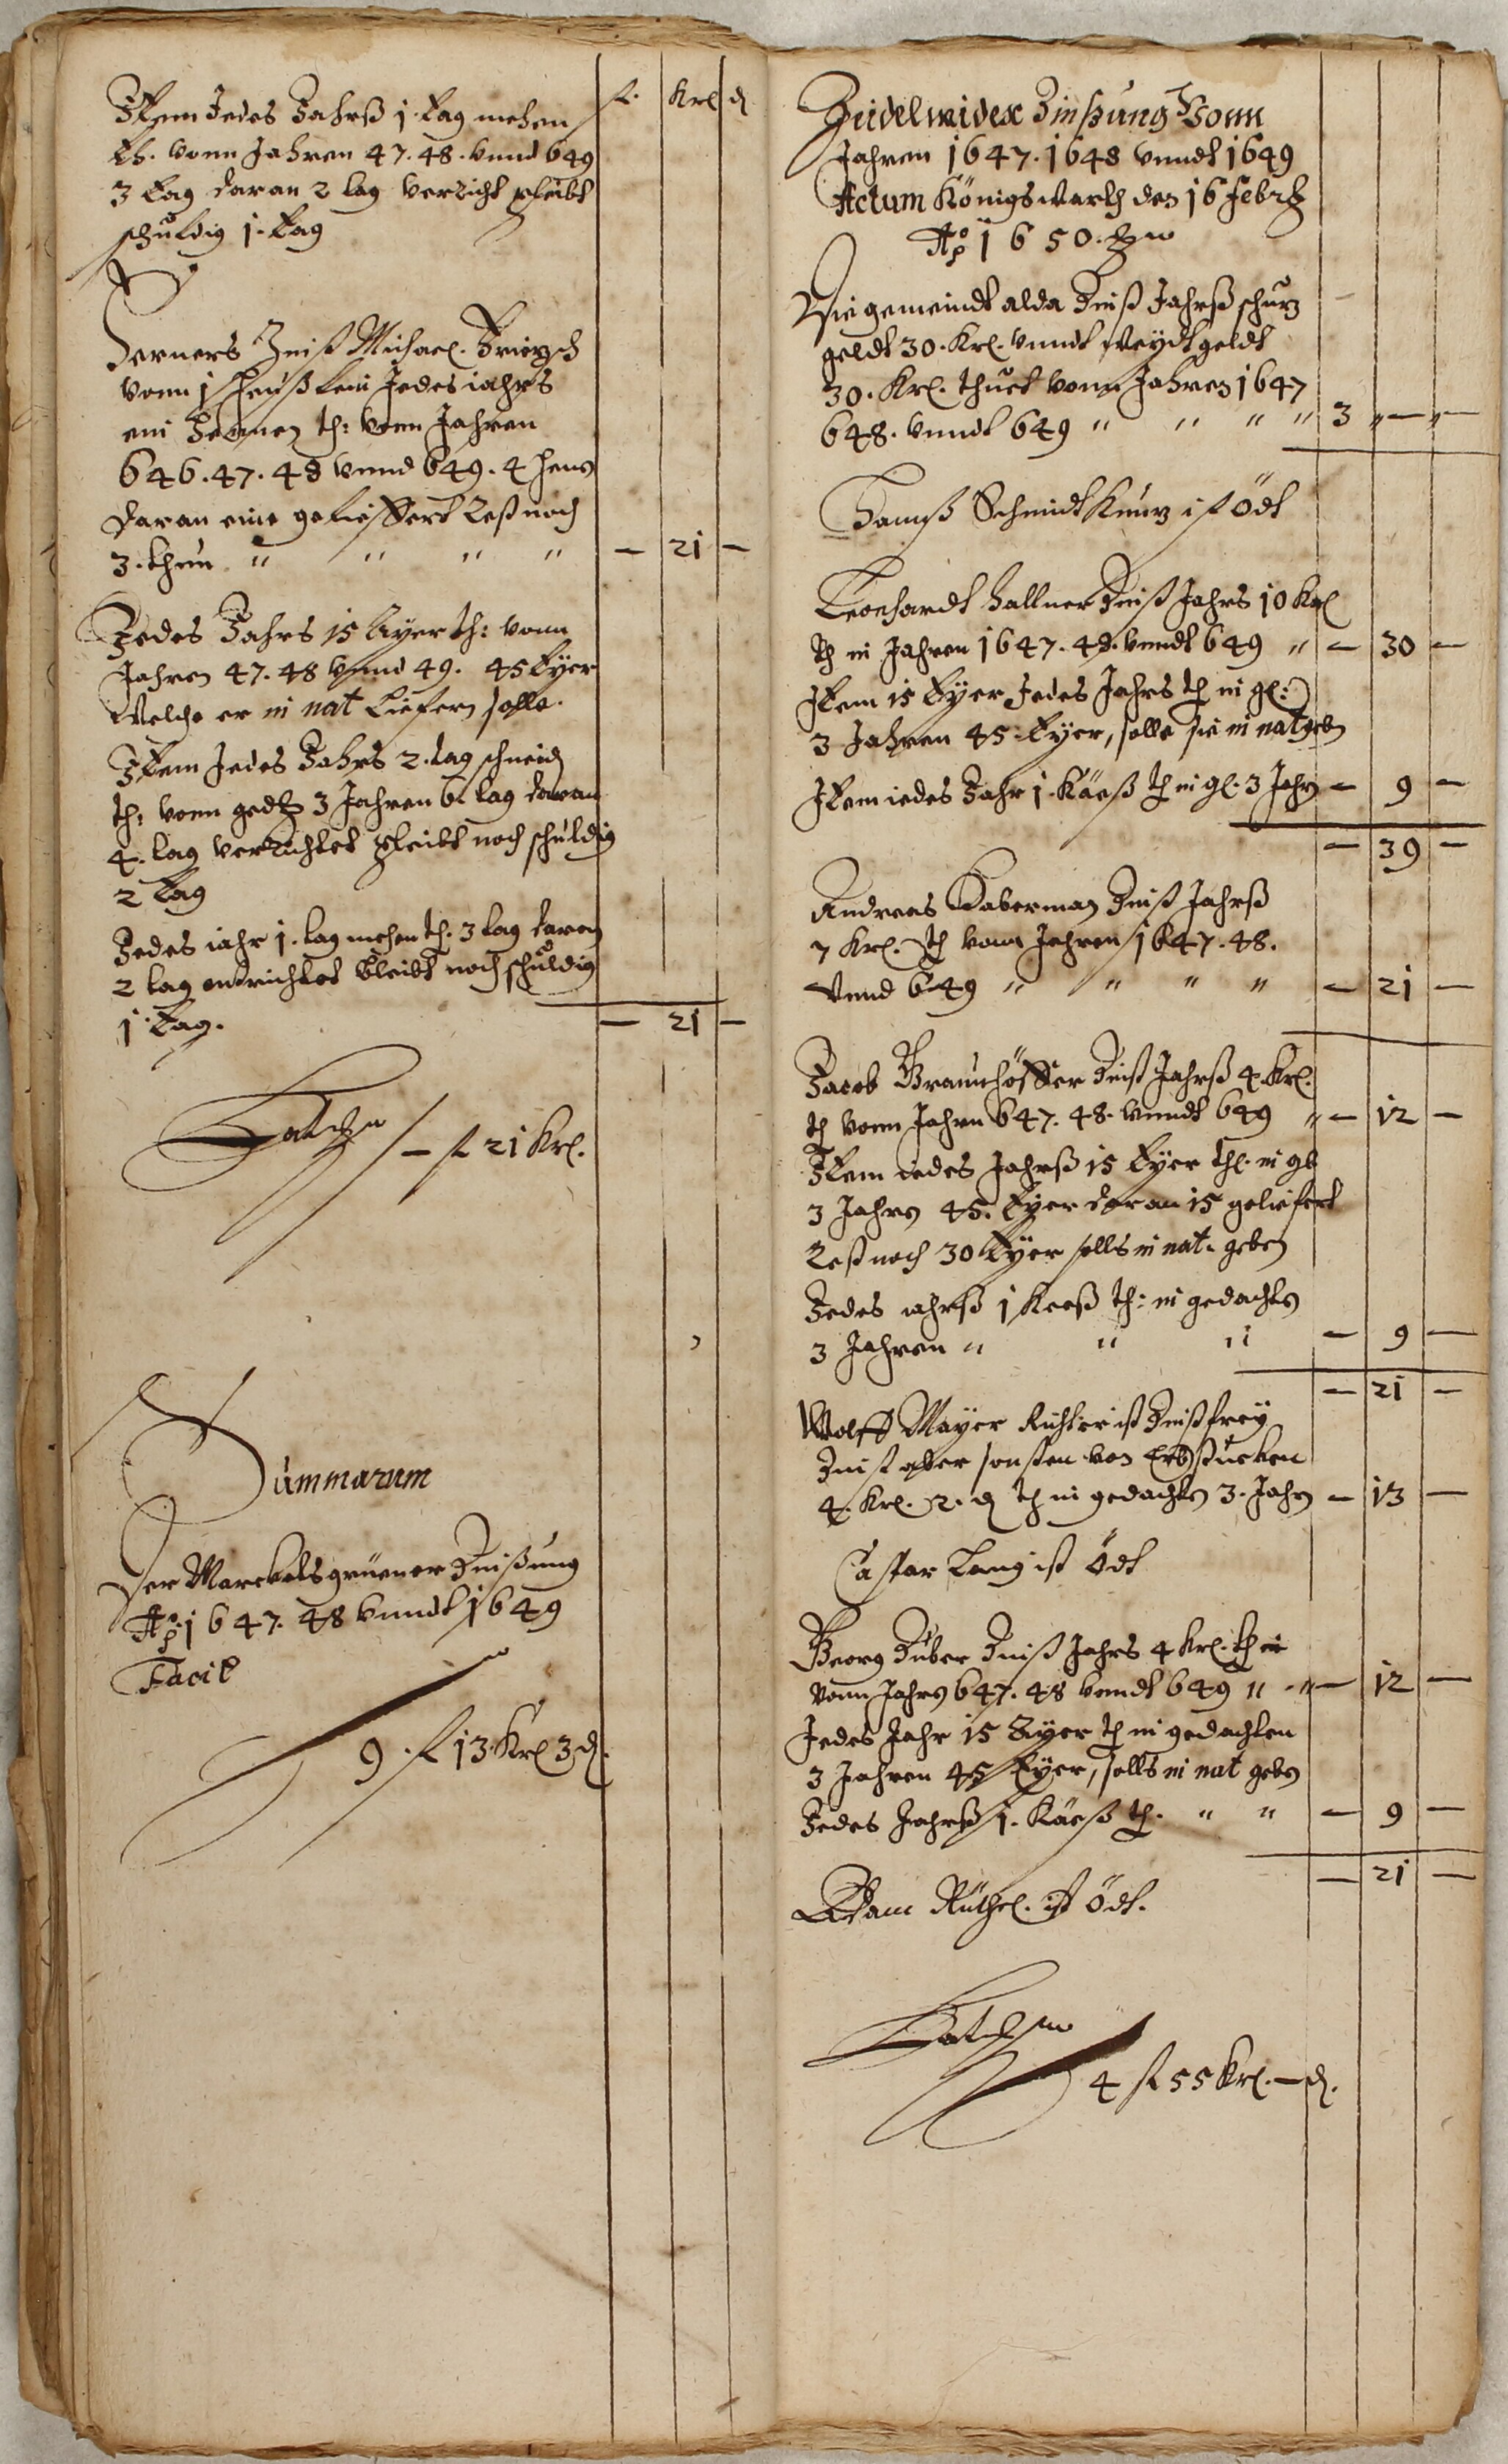 fl. Krl ₰
Item Jedes Jahrß 1. tag mehen
th. vonn Jahren 47. 48. vnnd 649
3 tag daran 2 tag verricht pleibt
schuldig 1. tag
Ferners Zinst Michael
vonn 1 heußlein Jedes iahrs
ein Hennen th: vonn Jahren
646. 47. 48 vnnd 649. 4 henn
daran eine gelieffert Rest noch
3. thun " " " " — 21 —
Jedes Jahrs 15 Ayer th: vonn
Jahren 47. 48 vnnd 49. 45 Eyer
Welche er in nat liefern solle.
Item Jedes Jahrs 2. tag schneid
th: vonn ged 3 Jahren 6 tag daran
4. tag verrichtet pleibt noch schuldig
2 tag
Jedes iahr 1. tag mehen th. 3 tag daran
2 tag entrichtet bleibt noch schuldig
1. tag. — 21 —
— fl 21 Krl.
Summarum
Der Marckelsgrüener Zinßung
Ao 1647. 48 vnndt 1649
Facit
9. fl 13. Krl 3 ₰.
Zeidelweider Zinßung Vonn
Jahren 1647. 1648 vnndt 1649
Actum Königswarth den 16 Febr
Ao 1650.
Die gemeindt alda Zinst Jahrß schutz
geldt 30. Krl. vnndt Weydtgeldt
30. Krl. thuet vonn Jahren 1647
648. vnndt 649 " " " " 3 " — " —
Hannß Schmidt Kunz ist Ödt
Leonhardt Hallner Zinst Jahrs 10 Krl
th in Jahren 1647. 48. vnndt 649 " — 30 —
Item 15 Eyer Jedes Jahrs th in gl:
3 Jahren 45. Eyer, solle sie in nat geben
Item iedes Jahr 1. Käeß th in gl. 3 Jahrn — 9 —
— 39 —
Andreas Haberman Zinst Jahrß
7 Krl. th vonn Jahren 1647. 48.
Vnnd 649 " " " " — 21 —
Jacob Braunhöffer Zinst Jahrß 4. Krl.
th vonn Jahrn 647. 48. vnndt 649 " — 12 —
Item iedes Jahrß 15 Eyer th. in gl
3 Jahrn 45. Eyer daran 15 geliefert
Rest noch 30 Eyer solls in nat. geben
Jedes iahrß 1 Keeß th: in gedachten
3 Jahren " " " — 9 —
— 21 —
Wolff Mayer Richter ist Zinst frey
Zinst aber sonsten von Erbstucken
4. Krl. 2. ₰ th in gedachten 3. Jahrn — 13 —
Caspar Lang ist Ödt
Georg Huber Zinst Jahrs 4 Krl. th
vonn Jahrn 647. 48 vnndt 649 " " — 12 —
Jedes Jahr 15 Ayer th in gedachten
3 Jahren 45 Eyer, solls in nat geben
Jedes Jahrß 1. Käeß th. " " — 9 —
— 21 —
Adam Rüthel. ist Ödt.
4 fl 55 Krl. — ₰.